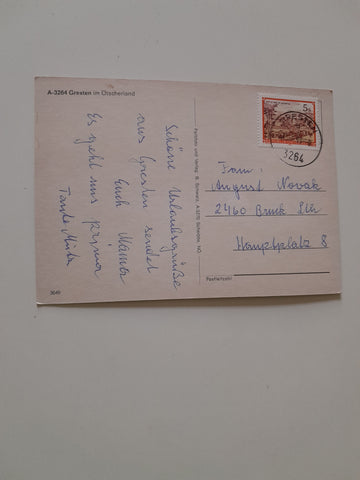 A-3264 Gresten im Ötscherland
Schöne Urlaubsgrüße
aus Gresten sendet
Euch Mama
Es geht uns prima
Tante Mitzi
3649
5
GRESTEN
3264
Fam:
August Novak
2460 Bruck Ltr
Hauptplatz 8
Postleitzahl